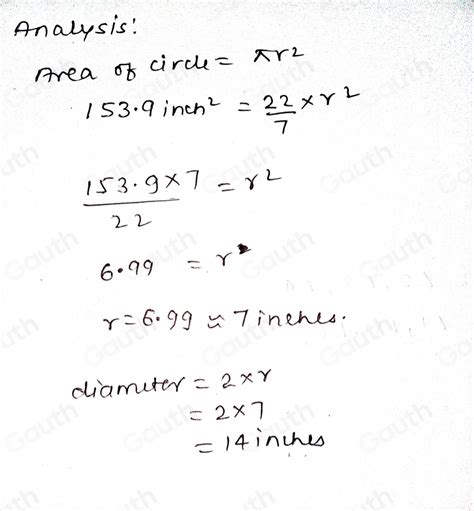 Analysis:
Area of circle = πr2
153.9 inch² = 22/7 × r²
153.9×7/22 = r²
6.99 = r
r = 6.99 ≈ 7 inches.
diameter = 2×r
= 2×7
= 14 inches